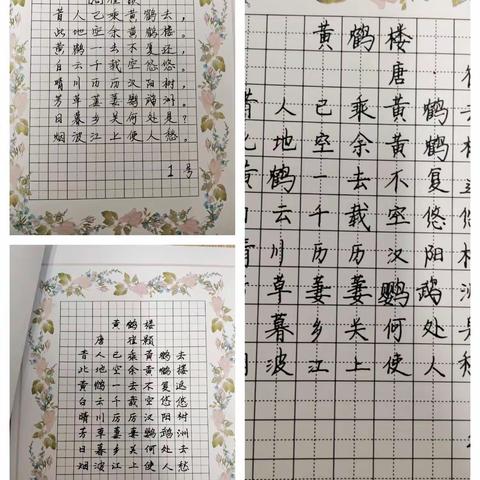 昔人已乘黄鹤去，
此地空余黄鹤楼。
黄鹤一去不复还，
白云千载空悠悠。
晴川历历汉阳树，
芳草萋萋鹦鹉洲。
日暮乡关何
烟波江上人愁。
1号
黄鹤楼
唐 崔颢
昔人已乘黄鹤去
此地空余黄鹤楼
黄鹤一去不复返
白云千载空悠悠
晴川历历汉阳树
芳草萋萋鹦鹉洲
日暮乡关何处
烟波江上使人愁
黄鹤楼
唐
人已乘黄鹤
地空余黄鹤
鹤一去不复
云千载空悠悠
川历历汉阳
草萋萋鹦鹉
暮乡关何处
波江上使人